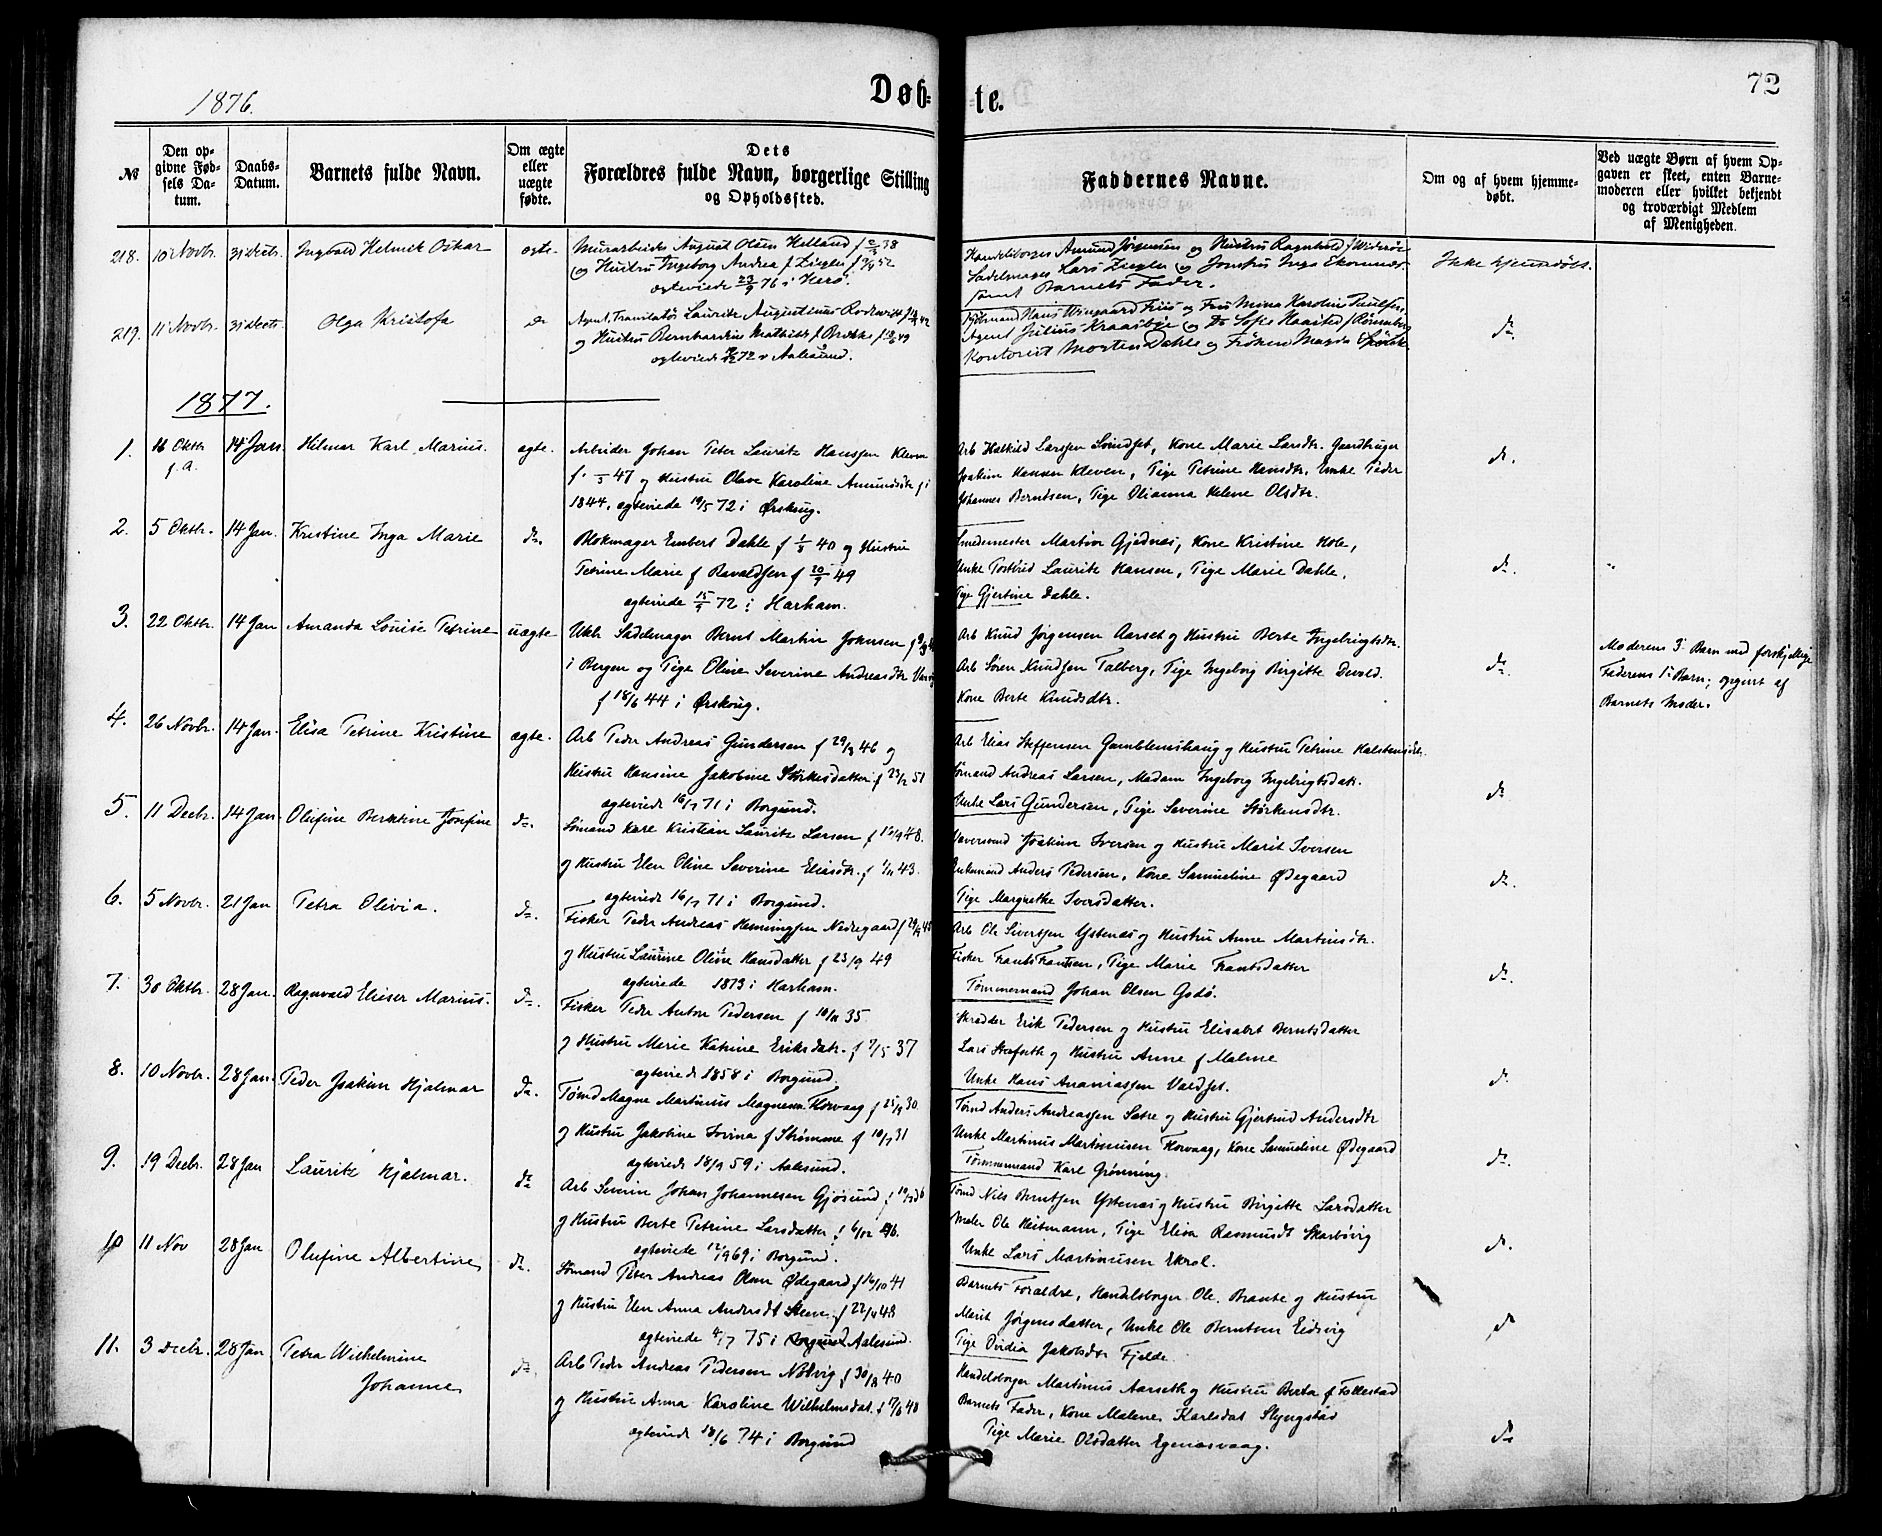 1876.
Døb-
te.
72
№
Den op-
givne Fød-
sels Da-
tum.
Daabs-
Datum.
Barnets fulde Navn.
Om ægte
eller
uægte
fødte.
Dets
Forældres fulde Navn, borgerlige Stilling
og Opholdssted.
Faddernes Navne.
Om og af hvem hjemme-
døbt.
Ved uægte Børn af hvem Op-
gaven er skeet, enten Barne-
moderen eller hvilket bekjendt
og troværdigt Medlem
af Menigheden.
218. 10 Novbr. 31 Decbr. Ingvald Helmik Oskar ægte.
Murarbeider August Olsen Helland f
og Hustru Ingeborg Andrea f Ziegler f
ægteviede 23/9 76 i Herø.
Handelsborger Amund Jørgensen og Hustru Ragnhild f Widerøe
Sadelmager Lars Ziegler og Jomfru Inga
samt Barnets Fader.
Ikke hjemmedøbt.
219. 11 Novbr. 31 Decbr. Olga Kristofa do
Agent, Translatør Lauritz Augustinus
og Hustru Bernhardine Mathilde f
ægteviede 72 i Aalesund.
Kjøbmand Hans Wingaard Friis og Fru Mina Karoline Paulsen
Agent Julius Kraasbye og Do Sofie Haasted f Rönneberg
Kontorist Morten Dahle og Frøken Magda
do
1877.
1. 16 Oktbr f.a. 14 Jan. Hilmar Karl Marius. ægte.
Arbeider Johan Peter Lauritz Hanssen Kleven
f. 47 og Hustru Olave Karoline Amundsdtr f i
1844, ægteviede 19/5 72 i Ørskoug.
Arb Halkild Larssen Soindset, Kone Marie Larsdtr. Gaardbruger
Joakim Hansen Kleven, Pige Petrine Hansdtr, Unke Peder
Johannes Berntsen, Pige Olianna Helene Olsdtr.
do.
2. 5 Oktbr. 14 Jan. Kristine Inga Marie do.
Blokmager Embert Dahle f 40 og Hustru
Petrine Marie f Ravaldsen f 49
ægteviede 72 i Harham.
Smedemester Martin Gjednæs, Kone Kristine Hole,
Unke Lauritz Hansen, Pige Marie Dahle,
Pige Gjertine Dahle.
do.
3. 22 Oktbr. 14 Jan Amanda Louise Petrine uægte
Ukb Sadelmager Bernt Martin Johnsen f
i Bergen og Pige Oline Severine Andreasdtr
f 18/6 44 i Ørskoug.
Arb Knud Jørgensen Aarset og Hustru Berte Ingebrigtsdtr.
Arb Søren Knudsen Talberg, Pige Ingeborg Birgitte Devold.
Kone Berte Knudsdtr.
do
Moderens 3 Barn med forskjellige
Faderens 1 Barn; opgivet af
Barnets Moder.
4. 26 Novbr. 14 Jan. Elisa Petrine Kristine ægte.
Arb Peder Andreas Gundersen f 29/3 46 og
Hustru Hansine Jakobine Størkesdatter f 23/12 51
ægteviede 16/7 71 i Borgund.
Arb Elias Steffensen Gamblemshaug og Hustru Petrine
Sømand Andreas Larsen, Madam Ingeborg Ingebrigtsdatr.
Unke Lars Gundersen, Pige Severine Størkensdtr.
do
5. 11 Decbr. 14 Jan. Olufine Berntine Josefine do.
Sømand Kare Kristian Lauritz Larsen f 48.
og Hustru Elen Oline Severine Eliasdtr. f 43.
ægteviede 16/7 71 i Borgund.
Joakim Iversen og Hustru Marit Iversen
Anders Pedersen, Kone Samueline Ødegaard
Pige Margrethe Iversdatter.
do.
6. 5 Novbr. 21 Jan Petra Olivia. do.
Fisker Peder Andreas Henningsen Nedregaard f
og Hustru Laurine Oline Hansdatter f 23/9 49
ægteviede 1873 i Harham.
Arb Ole Sivertsen Ystenæs og Hustru Anne Martinsdtr.
Fisker Frants Frantsen, Pige Marie Frantsdatter
Tømmermand Johan Olsen Godø.
do.
7. 30 Oktbr. 28 Jan. Ragnvald Elieser Marius. do.
Fisker Peder Anton Pedersen f 35
og Hustru Marie Katrine Eriksdatr. f 7/5 37
ægteviede 1858 i Borgund.
Skrædder Erik Pedersen og Hustru Elisabet Berntsdatter
Lars Hofseth og Hustru Anne f Malme
Unke Hans Ananiassen Valdset.
do.
8. 10 Novbr. 28 Jan. Peder Joakim Hjalmar do.
Tømd Magne Martinus Magnesen Korvaag f 30
og Hustru Jakobine Jovina f Strømme f 10/7 31
ægteviede 59 i Aalesund.
Tømd Anders Andreassen Satre og Hustru Gjertrud Andersdtr
Unke Martinus Martinusen Korvaag, Kone Samueline Ødegaard
Tømmermand Karl Grønning.
do.
9. 19 Decbr. 28 Jan Lauritz Hjalmar. do
Arb Severin Johan Johannesen Gjøsund f
og Hustru Berte Petrine Larsdatter f
ægteviede 69 i Borgund.
Tømd Nils Berntsen Ystenæs og Hustru Birgitte Larsdatter
Maler Ole Heitmann, Pige Elisa Rasmusdt Skarbøvig
Unke Lars Martinusen Ekrol.
do.
10 11 Nov 28 Jan Olufine Albertine do.
Sømand Peter Andreas Olsen Ødegaard f 16/10 41
og Hustru Elen Anna Andersdt Stene f 22/4 48
ægteviede 4/7 75 i Borgund Aalesund.
Barnets Forældre, Handelsborger Ole Brante og Hustru
Marit Jørgensdatter, Unke Ole Berntsen Eidsvig
Pige Ovidia Jakobsdtr Fjelde.
do
11. 3 Decbr. 28 Jan Petra Wilhelmine
Johanne do.
Arb Peder Andreas Pedersen Nørvig f 40
og Hustru Anna Karoline Wilhelmsdat. f
ægteviede 18/6 74 i Borgund
Handelsborger Martinus Aarseth og Hustru Berta f Follestad
Barnets Fader, Kone Malene Karlsdat Slyngstad
Pige Marie Olsdatter Egenæsvaag.
do